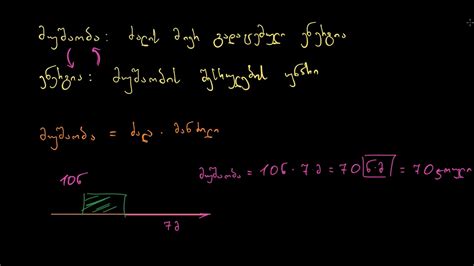 მუშაობა: ძალის მიერ გადაცემული ენერგია
ენერგია: მუშაობის შესრულების უნარი
მუშაობა = ძალა · მანძილი
10ნ
მუშაობა = 10ნ · 7მ = 70 ნ·მ = 70 ჯოული
7მ